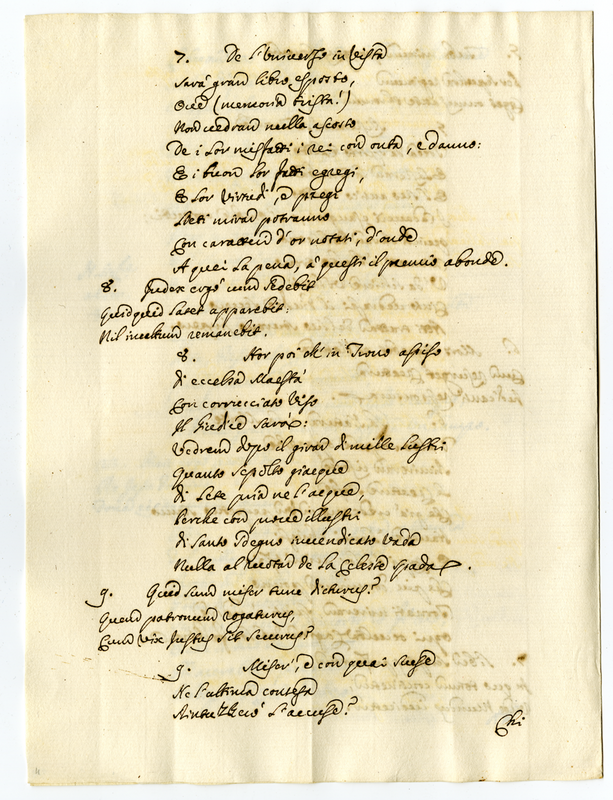 7. De l'universo in vista
Sarà gran libro esposto,
Ove (memoria trista!)
Non vedran nulla ascosto
De i lor misfatti i rei con onta, e danno:
E i buon lor fatti egregi,
E lor virtudi, e pregi
Lieti mirar potranno
Con caratteri d'or notati, d'onde
A quei la pena, à questi il premio abonde.
8. Judex ergo cum sedebit
Quidquid latet apparebit:
Nil inultum remanebit.
8. Hor poi ch'in Trono assiso
di eccelsa Maestà
Con corrucciato viso
Il Giudice sarà:
Vedrem dopo il girar di mille lustri
Quanto sepolto giacque
di Lete pria ne l'acque,
Perche con prove illustri
di santo sdegno invendicato vada
Nulla al rotar de la Celeste spada.
9. Quid sum miser tunc dicturus?
Quem patronum rogaturus,
Cum vix Justus sit securus?
9. Miser', e con quai scuse
Ne l'ultima contesa
l'accuse?
Chi